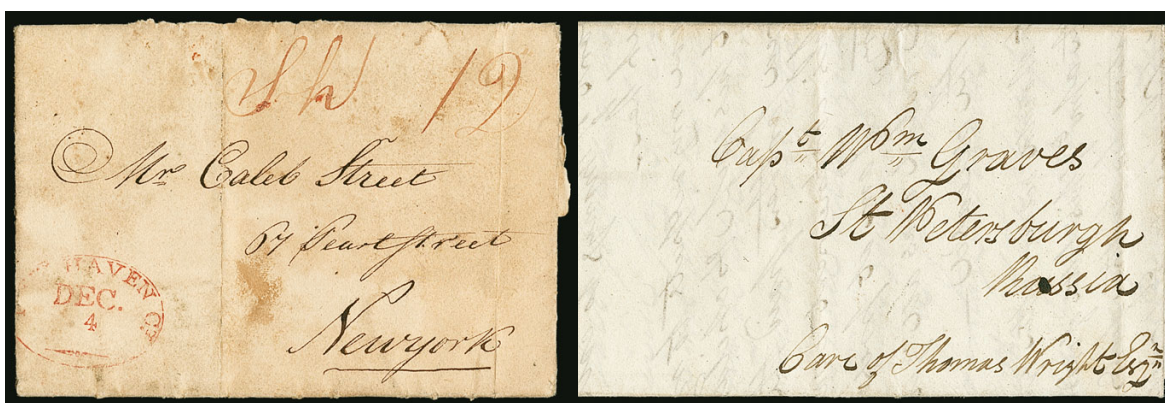 Sh 12
Mr. Caleb Street
67 Pearl Street
Newyork
HAVEN Ct
DEC.
4
Capt. Wm. Graves
St Petersburgh
Russia
Care of Thomas Wright Esqr.